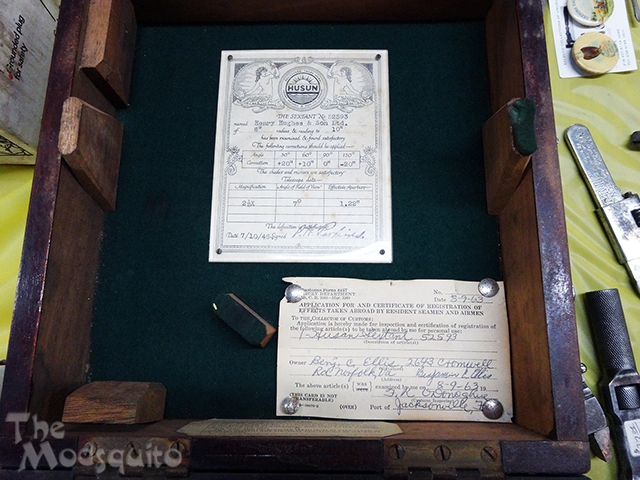 Grounded plug
for safety
HUSUN
THE SEXTANT № 52593
named Henry Hughes & Son Ltd.
of 6" radius & reading to 10"
has been examined & found satisfactory
The following corrections should be applied
Angle 30° 60° 90° 110°
Correction +20" +10" 0" -20"
The shades and mirrors are satisfactory
Telescope data
Magnification Angle of Field of View Effective Aperture
2½X 7° 1.22"
Date 7/10/45 Signed
Customs Form
TREASURY DEPARTMENT
No.
Date 8-9-63
APPLICATION FOR AND CERTIFICATE OF REGISTRATION OF
EFFECTS TAKEN ABROAD BY RESIDENT SEAMEN AND AIRMEN
TO THE COLLECTOR OF CUSTOMS:
Application is hereby made for inspection and certification of registration of
the following article(s) to be taken abroad by me for personal use:
1- Husun Sextant 52543
(Description of articles)
Owner Benj. C. Ellis 2643 Cromwell
Rd. Norfolk, Va.
(Address)
The above article(s) was were examined by me on 8-9-63 19
(THIS CARD IS NOT
TRANSFERABLE) (OVER) Port of Jacksonville,
The
Modsquito